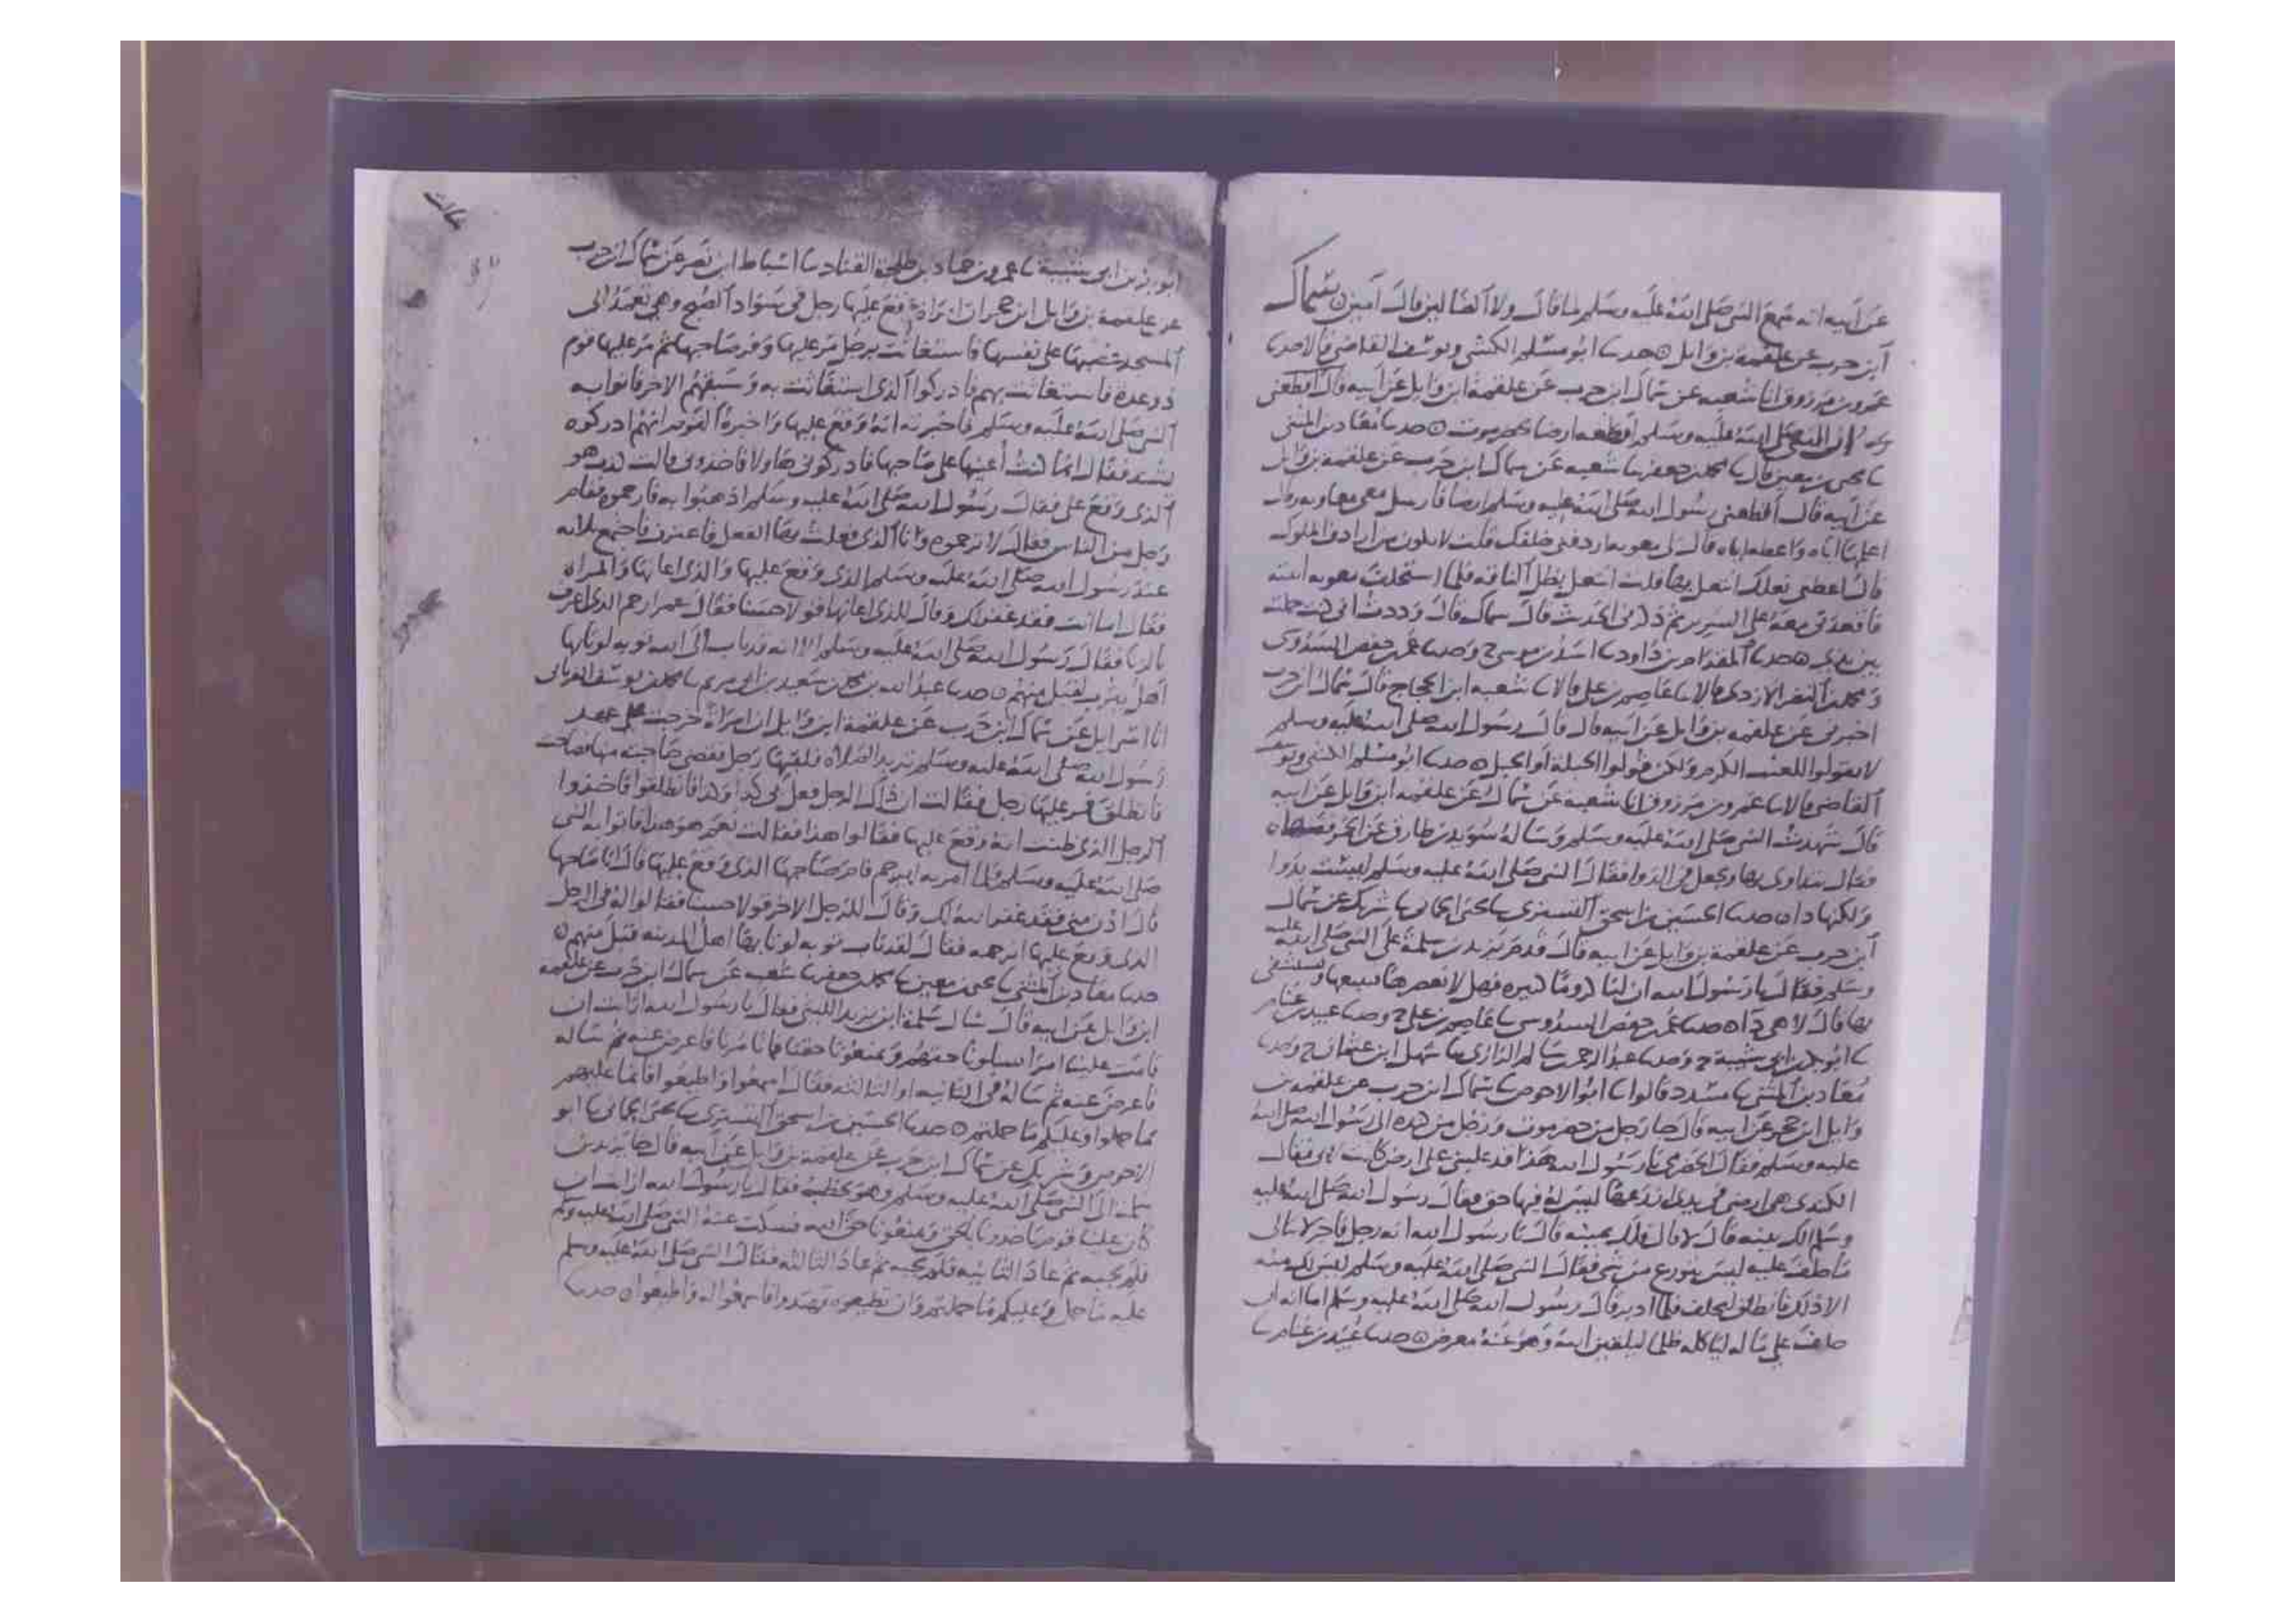 عن ابيه انه سمع النبي صلى الله عليه وسلم لما قال ولا الضالين قال امين سماك
ابن حرب عن علقمة بن وايل حدثنا ابو مسلم الكشي ويوسف القاضي قالا حدثنا
عمرو بن مرزوق انا شعبه عن سماك ابن حرب عن علقمة ابن وايل عن ابيه قال اقطعني
ان النبي صلى الله عليه وسلم اقطعه ارضا بحضرموت حدثنا معاذ بن المثنى
نا يحيى بن معين قال نا محمد بن جعفر نا شعبه عن سماك ابن حرب عن علقمة بن وايل
عن ابيه قال اقطعني رسول الله صلى الله عليه وسلم ارضا فارسل معي معاويه
اعطها اياه واعطه اياه قال لي معويه اردفني خلفك قلت لا تكون من ارداف الملوك
قال اعطني نعلك انتعل بها قلت انتعل بظل الناقه فلما استخلف معويه اتيته
فاقعدني معه على السرير ثم ذكرني الحديث قال سماك قال وددت اني كنت حملته
بين يدي حدثنا المقدام بن داود نا اسد بن موسى ح وحدثنا عمر بن حفص السدوسي
ومحمد بن النضر الازدي قالا نا عاصم بن علي قالا نا شعبه ابن الحجاج قال سماك ابن حرب
اخبرني عن علقمه بن وايل عن ابيه قال قال رسول الله صلى الله عليه وسلم
لا تقولوا للعنب الكرم ولكن قولوا الحبلة او الحبل حدثنا ابو مسلم الكشي ويوسف
القاضي قالا نا عمرو بن مرزوق انا شعبه عن سماك عن علقمه ابن وايل عن ابيه
قال شهدت النبي صلى الله عليه وسلم وساله سويد بن طارق عن الخمر فنهاه
فقال نتداوى بها ويجعل في الدوا فقال النبي صلى الله عليه وسلم ليست بدوا
ولكنها دا حدثنا الحسين بن اسحق التستري نا يحيى الحماني نا شريك عن سماك
ابن حرب عن علقمة بن وايل عن ابيه قال قدم يزيد بن سلمة على النبي صلى الله عليه
وسلم فقال يا رسول الله ان لنا كروما كثيره فهل لا نعصرها نبيعها ونستشفي
بها قال لا هي دا حدثنا عمر بن حفص السدوسي نا عاصم بن علي ح وحدثنا عبيد بن غنام
نا ابو بكر بن ابي شيبة ح وحدثنا عبد الرحمن بن سلم الرازي نا سهل ابن عثمان ح وحدثنا
معاذ بن المثنى نا مسدد قالوا نا ابو الاحوص نا سماك ابن حرب عن علقمه بن
وايل ابن حجر عن ابيه قال جا رجل من حضرموت ورجل من كنده الى رسول الله صلى الله
عليه وسلم فقال الحضرمي يا رسول الله هذا قد غلبني على ارض كانت لابي فقال
الكندي هي ارضي في يدي ازرعها ليس له فيها حق فقال رسول الله صلى الله عليه
وسلم الك بينه قال لا قال فلك يمينه قال يا رسول الله انه رجل فاجر لا يبالي
ما حلف عليه ليس يتورع من شي فقال النبي صلى الله عليه وسلم ليس لك منه
الا ذلك فانطلق ليحلف فلما ادبر قال رسول الله صلى الله عليه وسلم اما انه ان
حلف على ماله لياكله ظلما ليلقين الله وهو عنه معرض حدثنا عبيد بن غنام نا
ابو بكر بن ابي شيبة نا عمرو بن حماد بن طلحة القناد نا اسباط ابن نصر عن سماك ابن حرب
عن علقمة بن وايل ابن حجر ان امراة وقع عليها رجل في سواد الصبح وهي تعمد الى
المسجد على نفسها فاستغاثت برجل مر عليها وفر صاحبها ثم مر عليها قوم
ذو عدة فاستغاثت بهم فادركوا الذي استغاثت به وسبقهم الاخر فاتوا به
النبي صلى الله عليه وسلم فاخبرته انه وقع عليها واخبره القوم انهم ادركوه
يشتد فقال انما كنت اعينها على صاحبها فادركوني هاولا فاخذوني قالت كذب هو
الذي وقع علي فقال رسول الله صلى الله عليه وسلم اذهبوا به فارجموه فقام
رجل من الناس فقال لا ترجموه وانا الذي فعلت بها الفعل فاعترف فاجتمع ثلاثه
عند رسول الله صلى الله عليه وسلم الذي وقع عليها والذي اعانها والمراه
فقال اما انت فقد غفر لك وقال للذي اعانها قولا حسنا فقال عمر ارجم الذي اعترف
بالزنا فقال رسول الله صلى الله عليه وسلم لا انه قد تاب الى الله توبه لو تابها
اهل يثرب لقبل منهم حدثنا عبد الله بن محمد بن سعيد بن ابي مريم نا محمد بن يوسف الفريابي
انا اسرايل عن سماك ابن حرب عن علقمة ابن وايل ان امراة خرجت على عهد
رسول الله صلى الله عليه وسلم تريد الصلاة فلقيها رجل فقضى حاجته منها فصاحت
فانطلق فمر عليها رجل فقالت ان ذاك الرجل فعل بي كذا وكذا فانطلقوا فاخذوا
الرجل الذي ظنت انه وقع عليها فقالوا هذا فقالت نعم هو هذا فاتوا به النبي
صلى الله عليه وسلم فلما امر به ليرجم قام صاحبها الذي وقع عليها قال انا صاحبها
قال ادن مني فقد غفر الله لك وقال للرجل الاخر قولا حسنا فقالوا له في الرجل
الذي وقع عليها ارجمه فقال لقد تاب توبه لو تابها اهل المدينه قبل منهم
حدثنا معاذ بن المثنى نا يحيى بن معين نا محمد بن جعفر نا شعبه عن سماك ابن حرب عن علقمه
ابن وايل عن ابيه قال سال سلمة ابن يزيد الليثي فقال يا رسول الله ارايت ان
قامت علينا امرا يسلونا حقهم ويمنعونا حقنا فما تامرنا فاعرض عنه ثم ساله
فاعرض عنه ثم ساله في الثانيه او الثالثه فقال اسمعوا واطيعوا فانما عليهم
ما حملوا وعليكم ما حملتم حدثنا الحسين بن اسحق التستري نا يحيى الحماني نا ابو
الاحوص وشريك عن سماك ابن حرب عن علقمة بن وايل عن ابيه قال جا يزيد بن
سلمة الى النبي صلى الله عليه وسلم وهو يخطب فقال يا رسول الله ارايت ان
كان علينا قوم ياخذونا بالحق ويمنعونا حق الله فسكت عنه النبي صلى الله عليه وسلم
فلم يجيبه ثم عاد الثانيه فلم يجيبه ثم عاد الثالثه فقال النبي صلى الله عليه وسلم
عليه ما حمل وعليكم ما حملتم وان تطيعوه تهتدوا فاسمعوا له واطيعوا حدثنا